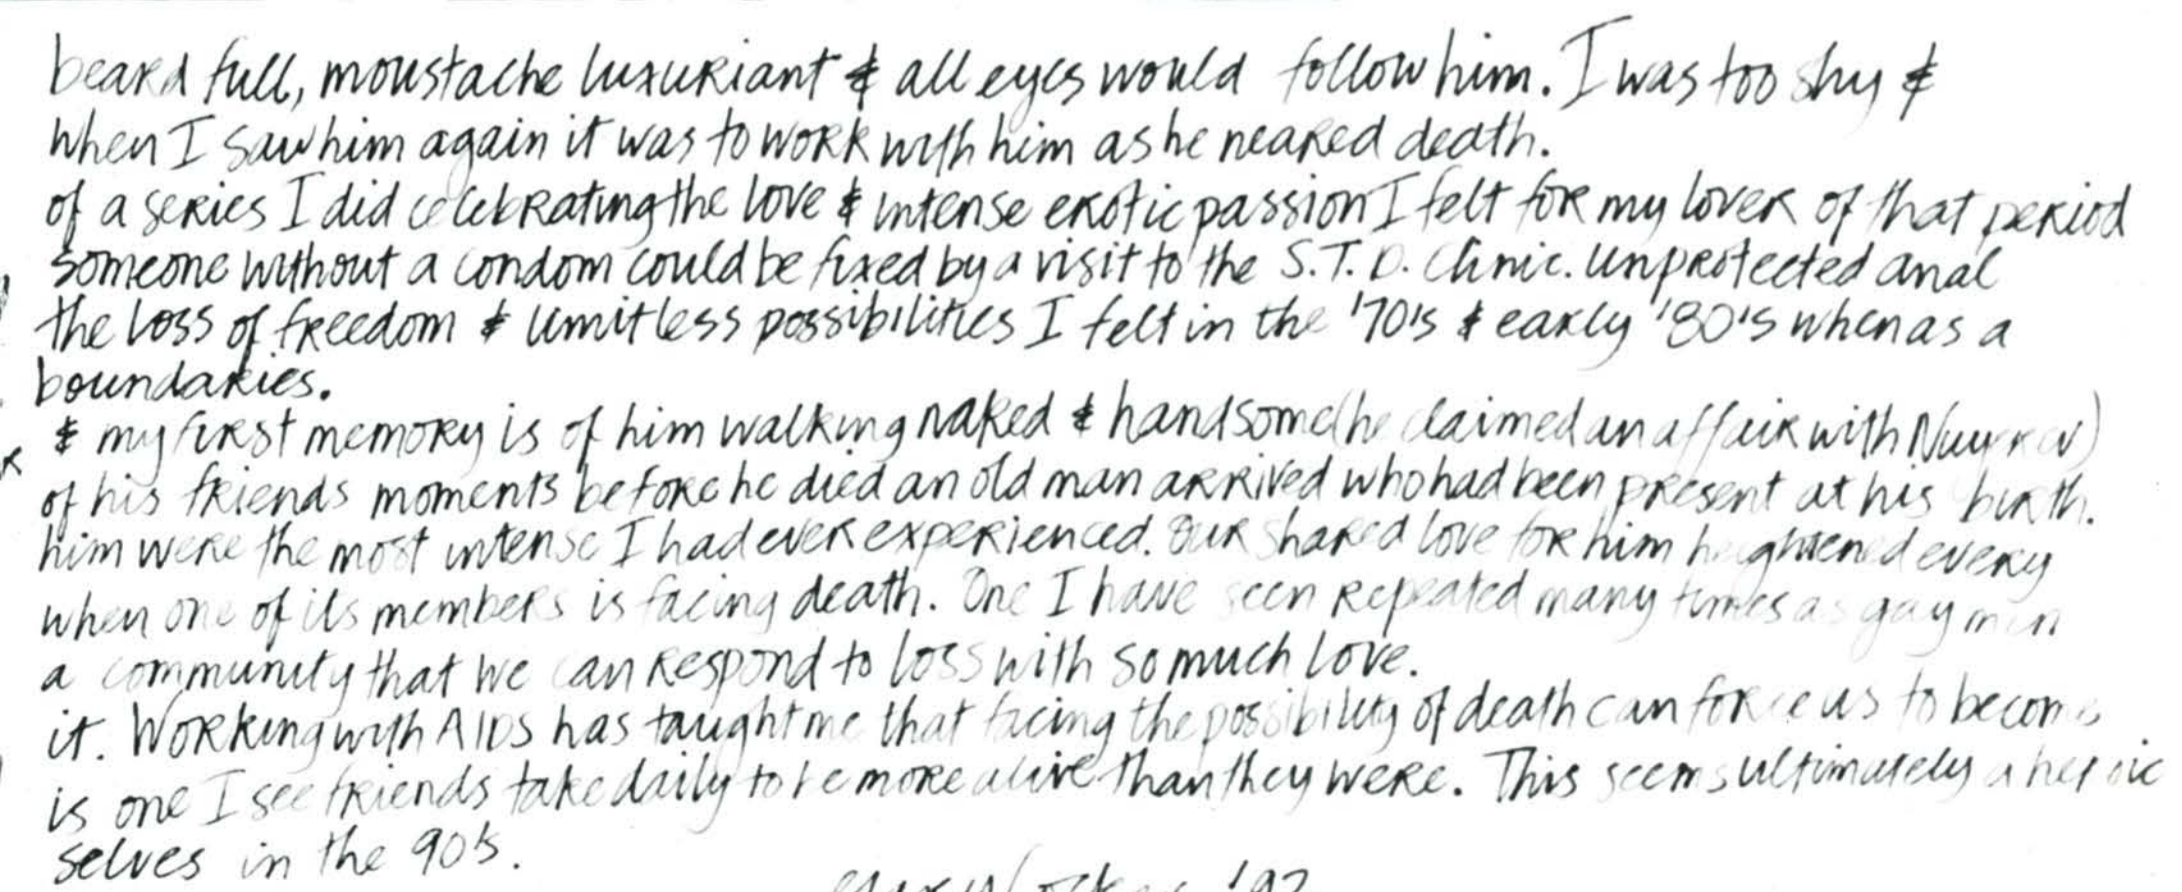 beard full, moustache luxuriant & all eyes would follow him. I was too shy &
when I saw him again it was to work with him as he neared death.
of a series I did celebrating the love & intense erotic passion I felt for my lover of that period
someone without a condom could be fixed by a visit to the S.T.D. Clinic. Unprotected anal
the loss of freedom & limitless possibilities I felt in the '70's & early '80's when as a
boundaries.
& my first memory is of him walking naked & handsome (he claimed an affair with
of his friends moments before he died an old man arrived who had been present at his birth.
him were the most intense I had ever experienced. Our shared love for him heightened every
when one of its members is facing death. One I have seen repeated many times as gay men
a community that we can respond to loss with so much love.
it. Working with AIDS has taught me that facing the possibility of death can force us to become
is one I see friends take daily to be more alive than they were. This seems ultimately a heroic
selves in the 90's.